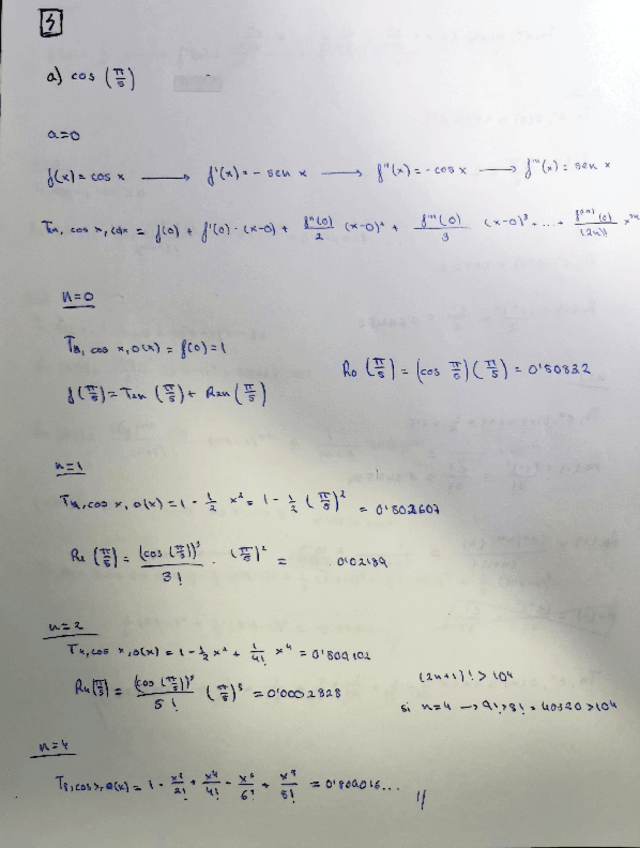 5
a) cos (π/5)
a=0
f(x) = cos x ⟶ f'(x) = - sen x ⟶ f''(x) = - cos x ⟶ f'''(x) = sen x
f(0) + f'(0) · (x-0) + f''(0)/2 (x-0)² + f'''(0)/3 (x-0)³ + ... +
n=0
cos x, 0(x) = f(0) = 1
R₀ (π/5) = (cos π/5)(π/5) = 0'50832
f(π/5) = T₂ₙ (π/5) + R₂ₙ (π/5)
n=1
cos x, 0(x) = 1 - 1/2 x² = 1 - 1/2 (π/5)² = 0'802607
(π/5) = (cos (π/5))³/3! · (π/5)² = 0'02189
n=2
T₄, cos x, 0(x) = 1 - 1/2 x² + 1/4! x⁴ = 0'809102
R₄(π/5) = (cos (π/5))⁵/5! (π/5)⁵ = 0'0002828
(2n+1)! > 104
si n=4 → 9! > 8! = 40320 > 104
n=4
T₈, cos x, 0(x) = 1 - x²/2! + x⁴/4! - x⁶/6! + x⁸/8! = 0'809016...